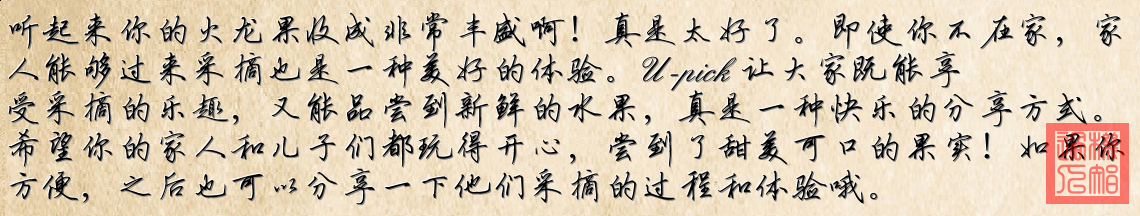 听起来你的火龙果收成非常丰盛啊！真是太好了。即使你不在家，家
人能够过来采摘也是一种美好的体验。U-pick 让大家既能享
受采摘的乐趣，又能品尝到新鲜的水果，真是一种快乐的分享方式。
希望你的家人和儿子们都玩得开心，尝到了甜美可口的果实！如果你
方便，之后也可以分享一下他们采摘的过程和体验哦。